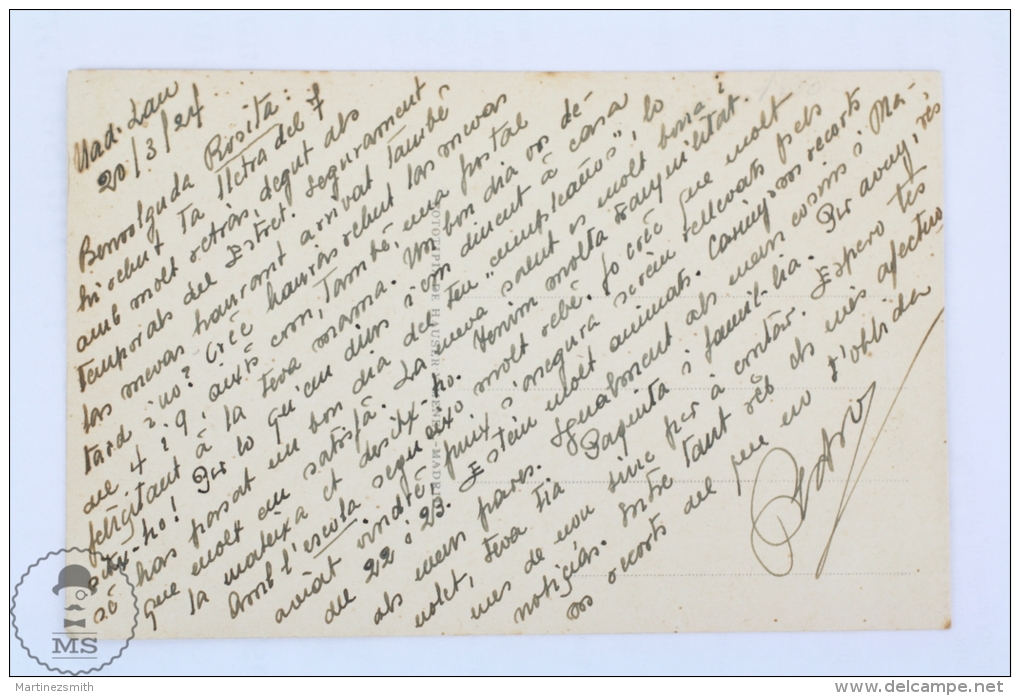 Uad-Lau
20/3/24
Benvolguda Rosita:
hi rebut ta lletra del 7
amb molt retràs, degut als
temporals del Estret. Segurament
las mevas hauránt arrivat també
tard ¿no? Crèc hauràs rebut las mevas
del 4 i 9, aixís com, també, una postal
felicitant á la teva mamá. Un bon dia vos de-
sitx-ho! Per lo qu'em dius i com dihent á casa
sé has passat un bon dia del teu "cumpleaños", lo
que molt em satisfá. La meva salut es molt bona i
la mateixa et desitx-ho. Tenim molta tranquilitat.
Amb l'escola segueixo molt rebé. Jo crèc que molt
aviat vindré, puix s'asegura serèm rellevats pels
22 ó 23. Estém molt animats. Carinyosos recorts
als meus pares. Igualment als meus cosins: Ma-
nolet, teva tia Paquita i famil-lia. Per avuy, rès
mes de nou tinc per á contar. Espero tes
noticias. Entre tant rèb els més afectuo
sos recorts del que no t'oblida
Pedro
FOTOTIPIA DE HAUSER Y MENET.-MADRID
MS
Martinezsmith
http://www.delcampe.net